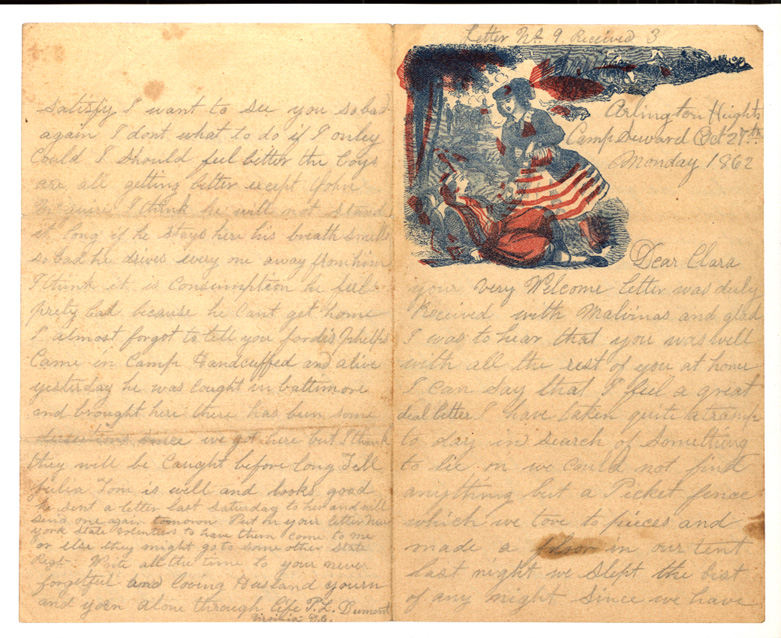 Letter No. 9 Received 3
Arlington Heights
Camp Seward Oct 27th
Monday 1862
Dear Clara
your very Welcome letter was duly
Received with Malvinas and glad
I was to hear that you was well
with all the rest of you at home
I can say that I feel a great
deal better I have taken quite a tramp
to day in search of Something
to lie on we could not find
anything but a Picket fence
which we tore to pieces and
made a floor in our tent
last night we slept the best
of any night since we have
satisfy I want to see you so bad
again I dont what to do if I onley
Could I Should feel better the boys
are all getting better except John
I think he will not stand
it long if he stays here his breath smells
so bad he drives every one away from him
I think it is Consumption he feels
prety bad because he Cant get home
I almost forgot to tell you
Came in Camp Handcuffed and alive
yesterday he was cought in baltimore
and brought here there has been some
since we got here but I think
they will be Caught before long Tell
Julia Tom is well and looks good
he sent a letter last Saturday to her and will
send one again tomorow Put on your letter New
york State Volenteers to have them Come to me
or else they might go to some other State
Regt. Write all the time to your never
forgetful and loving Husband yourn
and yorn alone through life P. L. Dumont
Virginia